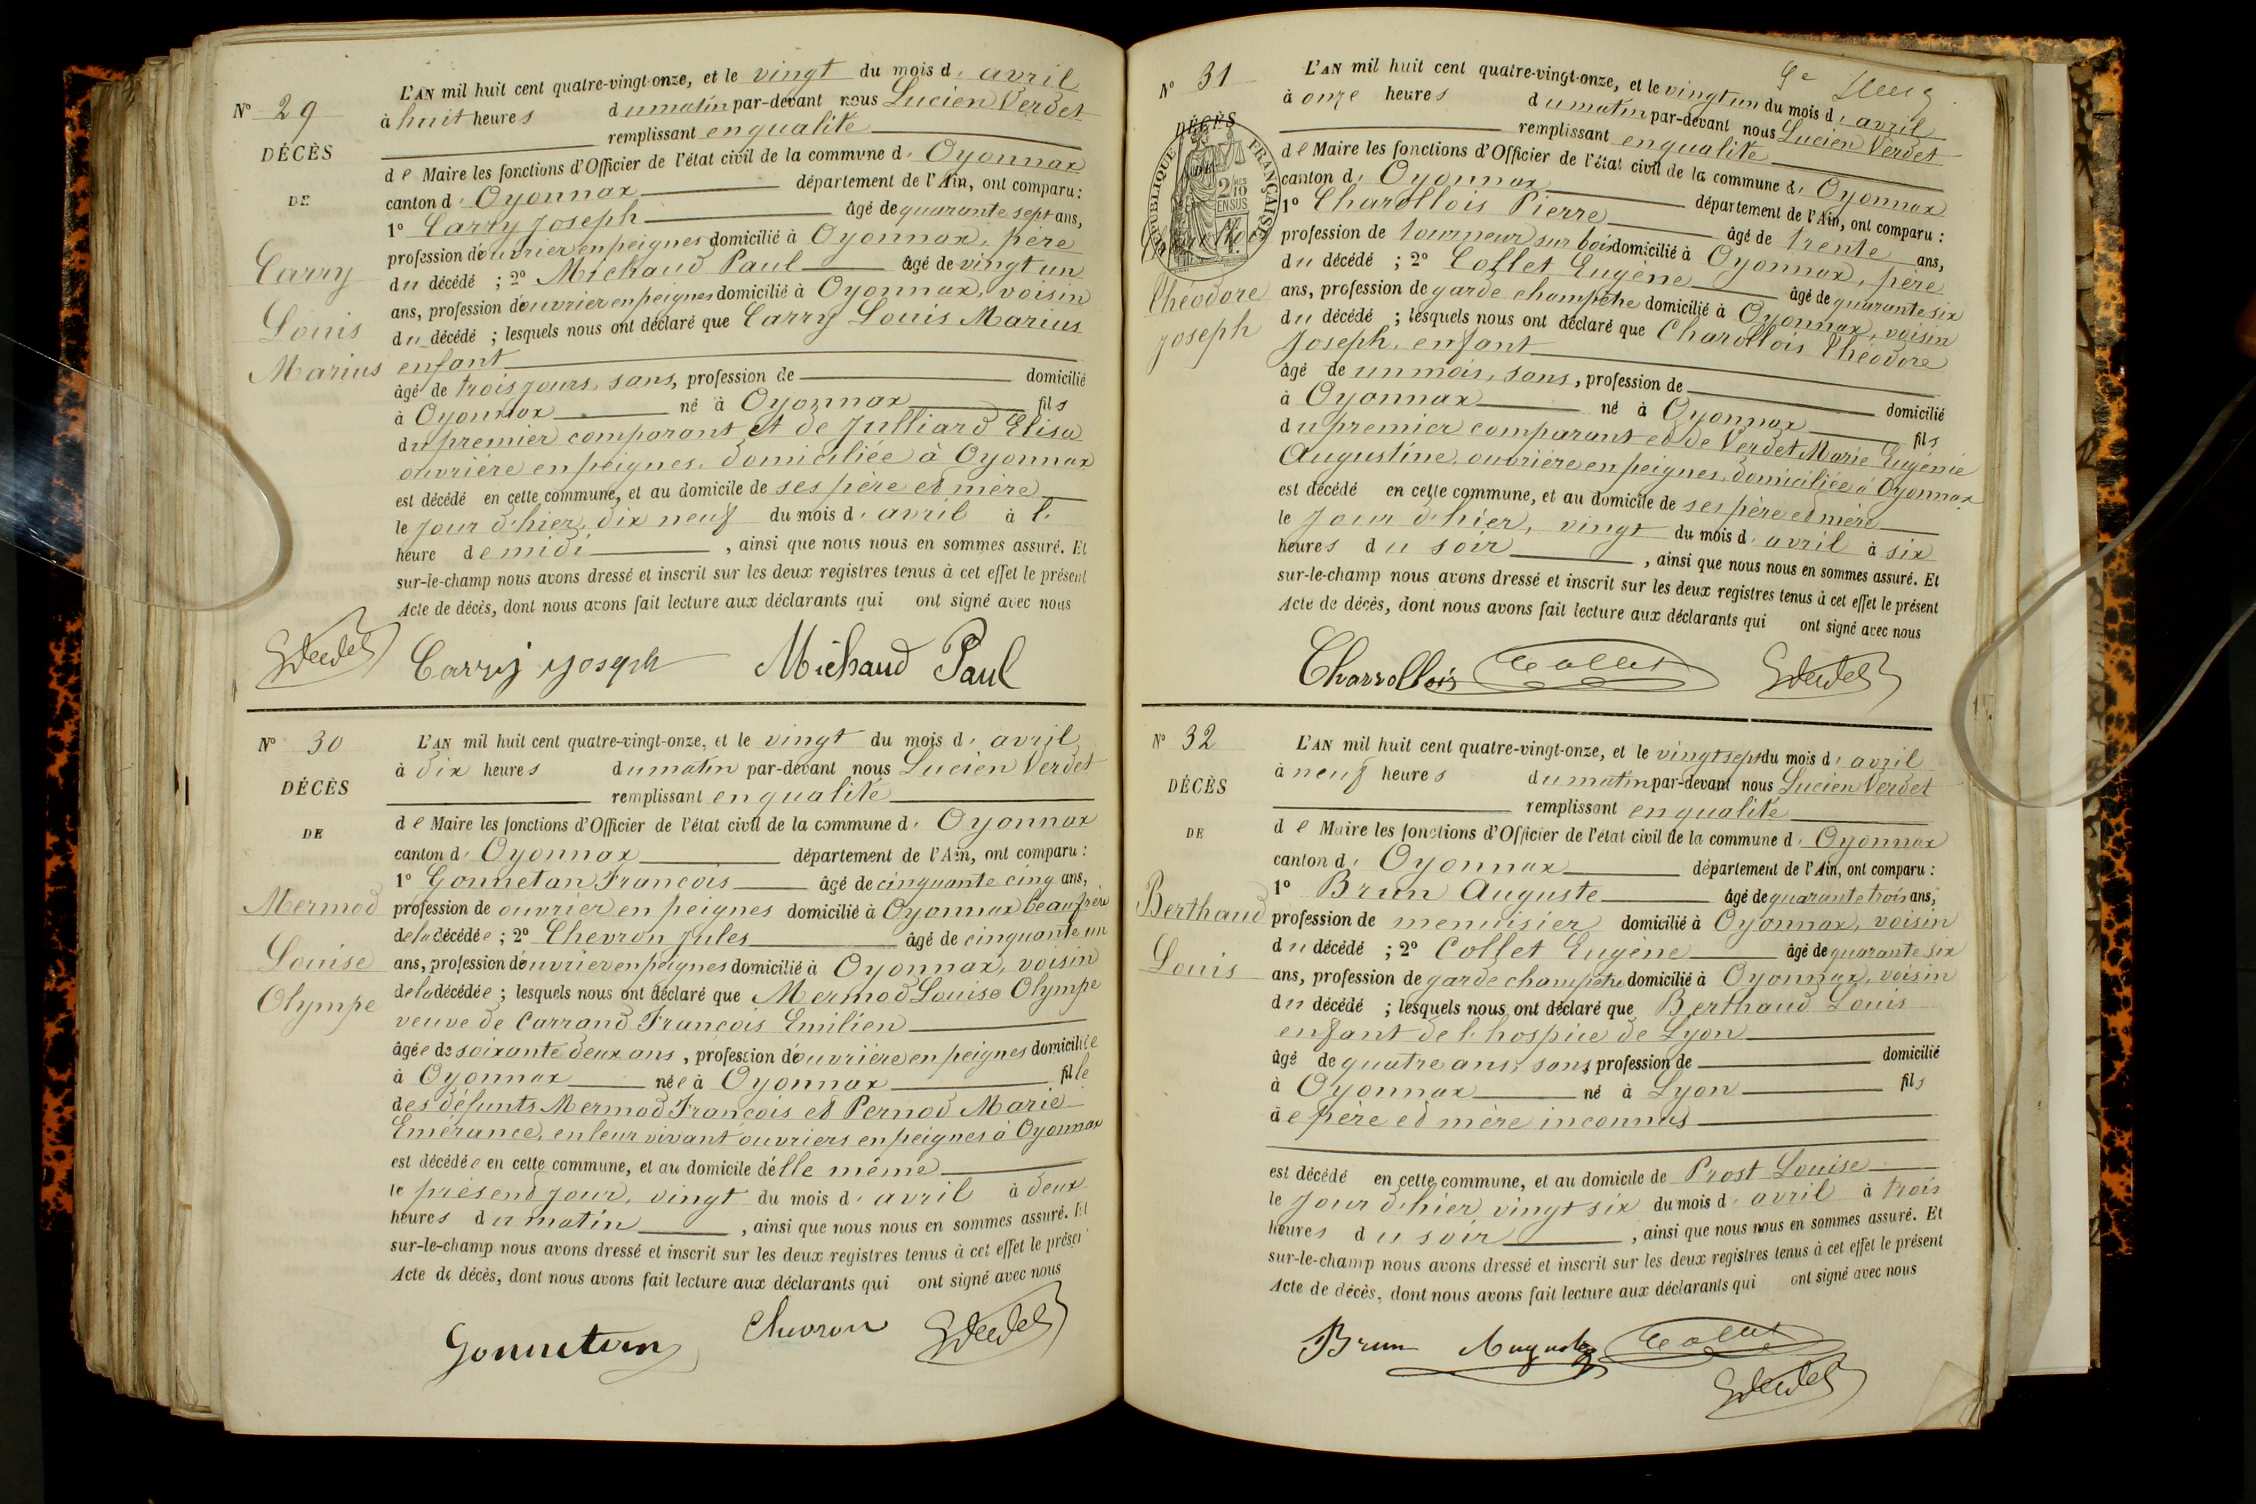 N° 29
DÉCÈS
DE
Carry
Louis
Marius
L'AN mil huit cent quatre-vingt-onze, et le vingt du mois d'avril
à huit heures du matin par-devant nous Lucien Verdet
remplissant en qualité
de Maire les fonctions d'Officier de l'état civil de la commune d'Oyonnax
canton d'Oyonnax département de l'Ain, ont comparu :
1° Carry Joseph âgé de quarante sept ans,
profession de ouvrier en peignes domicilié à Oyonnax, père
du décédé ; 2° Michaud Paul âgé de vingt un
ans, profession de ouvrier en peignes domicilié à Oyonnax, voisin
du décédé ; lesquels nous ont déclaré que Carry Louis Marius
enfant
âgé de trois jours, sans, profession de domicilié
à Oyonnax né à Oyonnax fils
du premier comparant et de Julliard Elisa
ouvrière en peignes, domiciliée à Oyonnax
est décédé en cette commune, et au domicile de ses père et mère
le jour d'hier, dix neuf du mois d'avril à l'
heure de midi, ainsi que nous nous en sommes assuré. Et
sur-le-champ nous avons dressé et inscrit sur les deux registres tenus à cet effet le présent
Acte de décès, dont nous avons fait lecture aux déclarants qui ont signé avec nous
Carry Joseph Michaud Paul
N° 30
DÉCÈS
DE
Mermod
Louise
Olympe
L'AN mil huit cent quatre-vingt-onze, et le vingt du mois d'avril
à dix heures du matin par-devant nous Lucien Verdet
remplissant en qualité
de Maire les fonctions d'Officier de l'état civil de la commune d'Oyonnax
canton d'Oyonnax département de l'Ain, ont comparu :
1° Gonnetan François âgé de cinquante cinq ans,
profession de ouvrier en peignes domicilié à Oyonnax beau frère
de la décédée ; 2° Chevron Jules âgé de cinquante un
ans, profession de ouvrier en peignes domicilié à Oyonnax, voisin
de la décédée ; lesquels nous ont déclaré que Mermod Louise Olympe
veuve de Carrand François Emilien
âgée de soixante deux ans, profession d'ouvrière en peignes domiciliée
à Oyonnax née à Oyonnax fille
des défunts Mermod François et Pernod Marie
Emérance, en leur vivant ouvriers en peignes à Oyonnax
est décédée en cette commune, et au domicile d'elle même
le présent jour, vingt du mois d'avril à deux
heures du matin, ainsi que nous nous en sommes assuré. Et
sur-le-champ nous avons dressé et inscrit sur les deux registres tenus à cet effet le présent
Acte de décès, dont nous avons fait lecture aux déclarants qui ont signé avec nous
Gonnetan Chevron
N° 31
DÉCÈS
DE
RÉPUBLIQUE FRANÇAISE
2/10 EN SUS
Théodore
Joseph
L'AN mil huit cent quatre-vingt-onze, et le vingt un du mois d'avril
à onze heures du matin par-devant nous Lucien Verdet
remplissant en qualité
de Maire les fonctions d'Officier de l'état civil de la commune d'Oyonnax
canton d'Oyonnax département de l'Ain, ont comparu :
1° Charollois Pierre âgé de trente ans,
profession de tourneur sur bois domicilié à Oyonnax, père
du décédé ; 2° Collet Eugène âgé de quarante six
ans, profession de garde champêtre domicilié à Oyonnax, voisin
du décédé ; lesquels nous ont déclaré que Charollois Théodore
Joseph, enfant
âgé de un mois, sans, profession de domicilié
à Oyonnax né à Oyonnax fils
du premier comparant et de Verdet Marie Eugénie
Augustine, ouvrière en peignes, domiciliée à Oyonnax
est décédé en cette commune, et au domicile de ses père et mère
le jour d'hier, vingt du mois d'avril à six
heures du soir, ainsi que nous nous en sommes assuré. Et
sur-le-champ nous avons dressé et inscrit sur les deux registres tenus à cet effet le présent
Acte de décès, dont nous avons fait lecture aux déclarants qui ont signé avec nous
Charrollois Collet
N° 32
DÉCÈS
DE
Berthaud
Louis
L'AN mil huit cent quatre-vingt-onze, et le vingt sept du mois d'avril
à neuf heures du matin par-devant nous Lucien Verdet
remplissant en qualité
de Maire les fonctions d'Officier de l'état civil de la commune d'Oyonnax
canton d'Oyonnax département de l'Ain, ont comparu :
1° Brun Auguste âgé de quarante trois ans,
profession de menuisier domicilié à Oyonnax, voisin
du décédé ; 2° Collet Eugène âgé de quarante six
ans, profession de garde champêtre domicilié à Oyonnax, voisin
du décédé ; lesquels nous ont déclaré que Berthaud Louis
enfant de l'hospice de Lyon
âgé de quatre ans, sans, profession de domicilié
à Oyonnax né à Lyon fils
de père et mère inconnus
est décédé en cette commune, et au domicile de Prost Louise
le jour d'hier vingt six du mois d'avril à trois
heures du soir, ainsi que nous nous en sommes assuré. Et
sur-le-champ nous avons dressé et inscrit sur les deux registres tenus à cet effet le présent
Acte de décès, dont nous avons fait lecture aux déclarants qui ont signé avec nous
Brun Auguste Collet